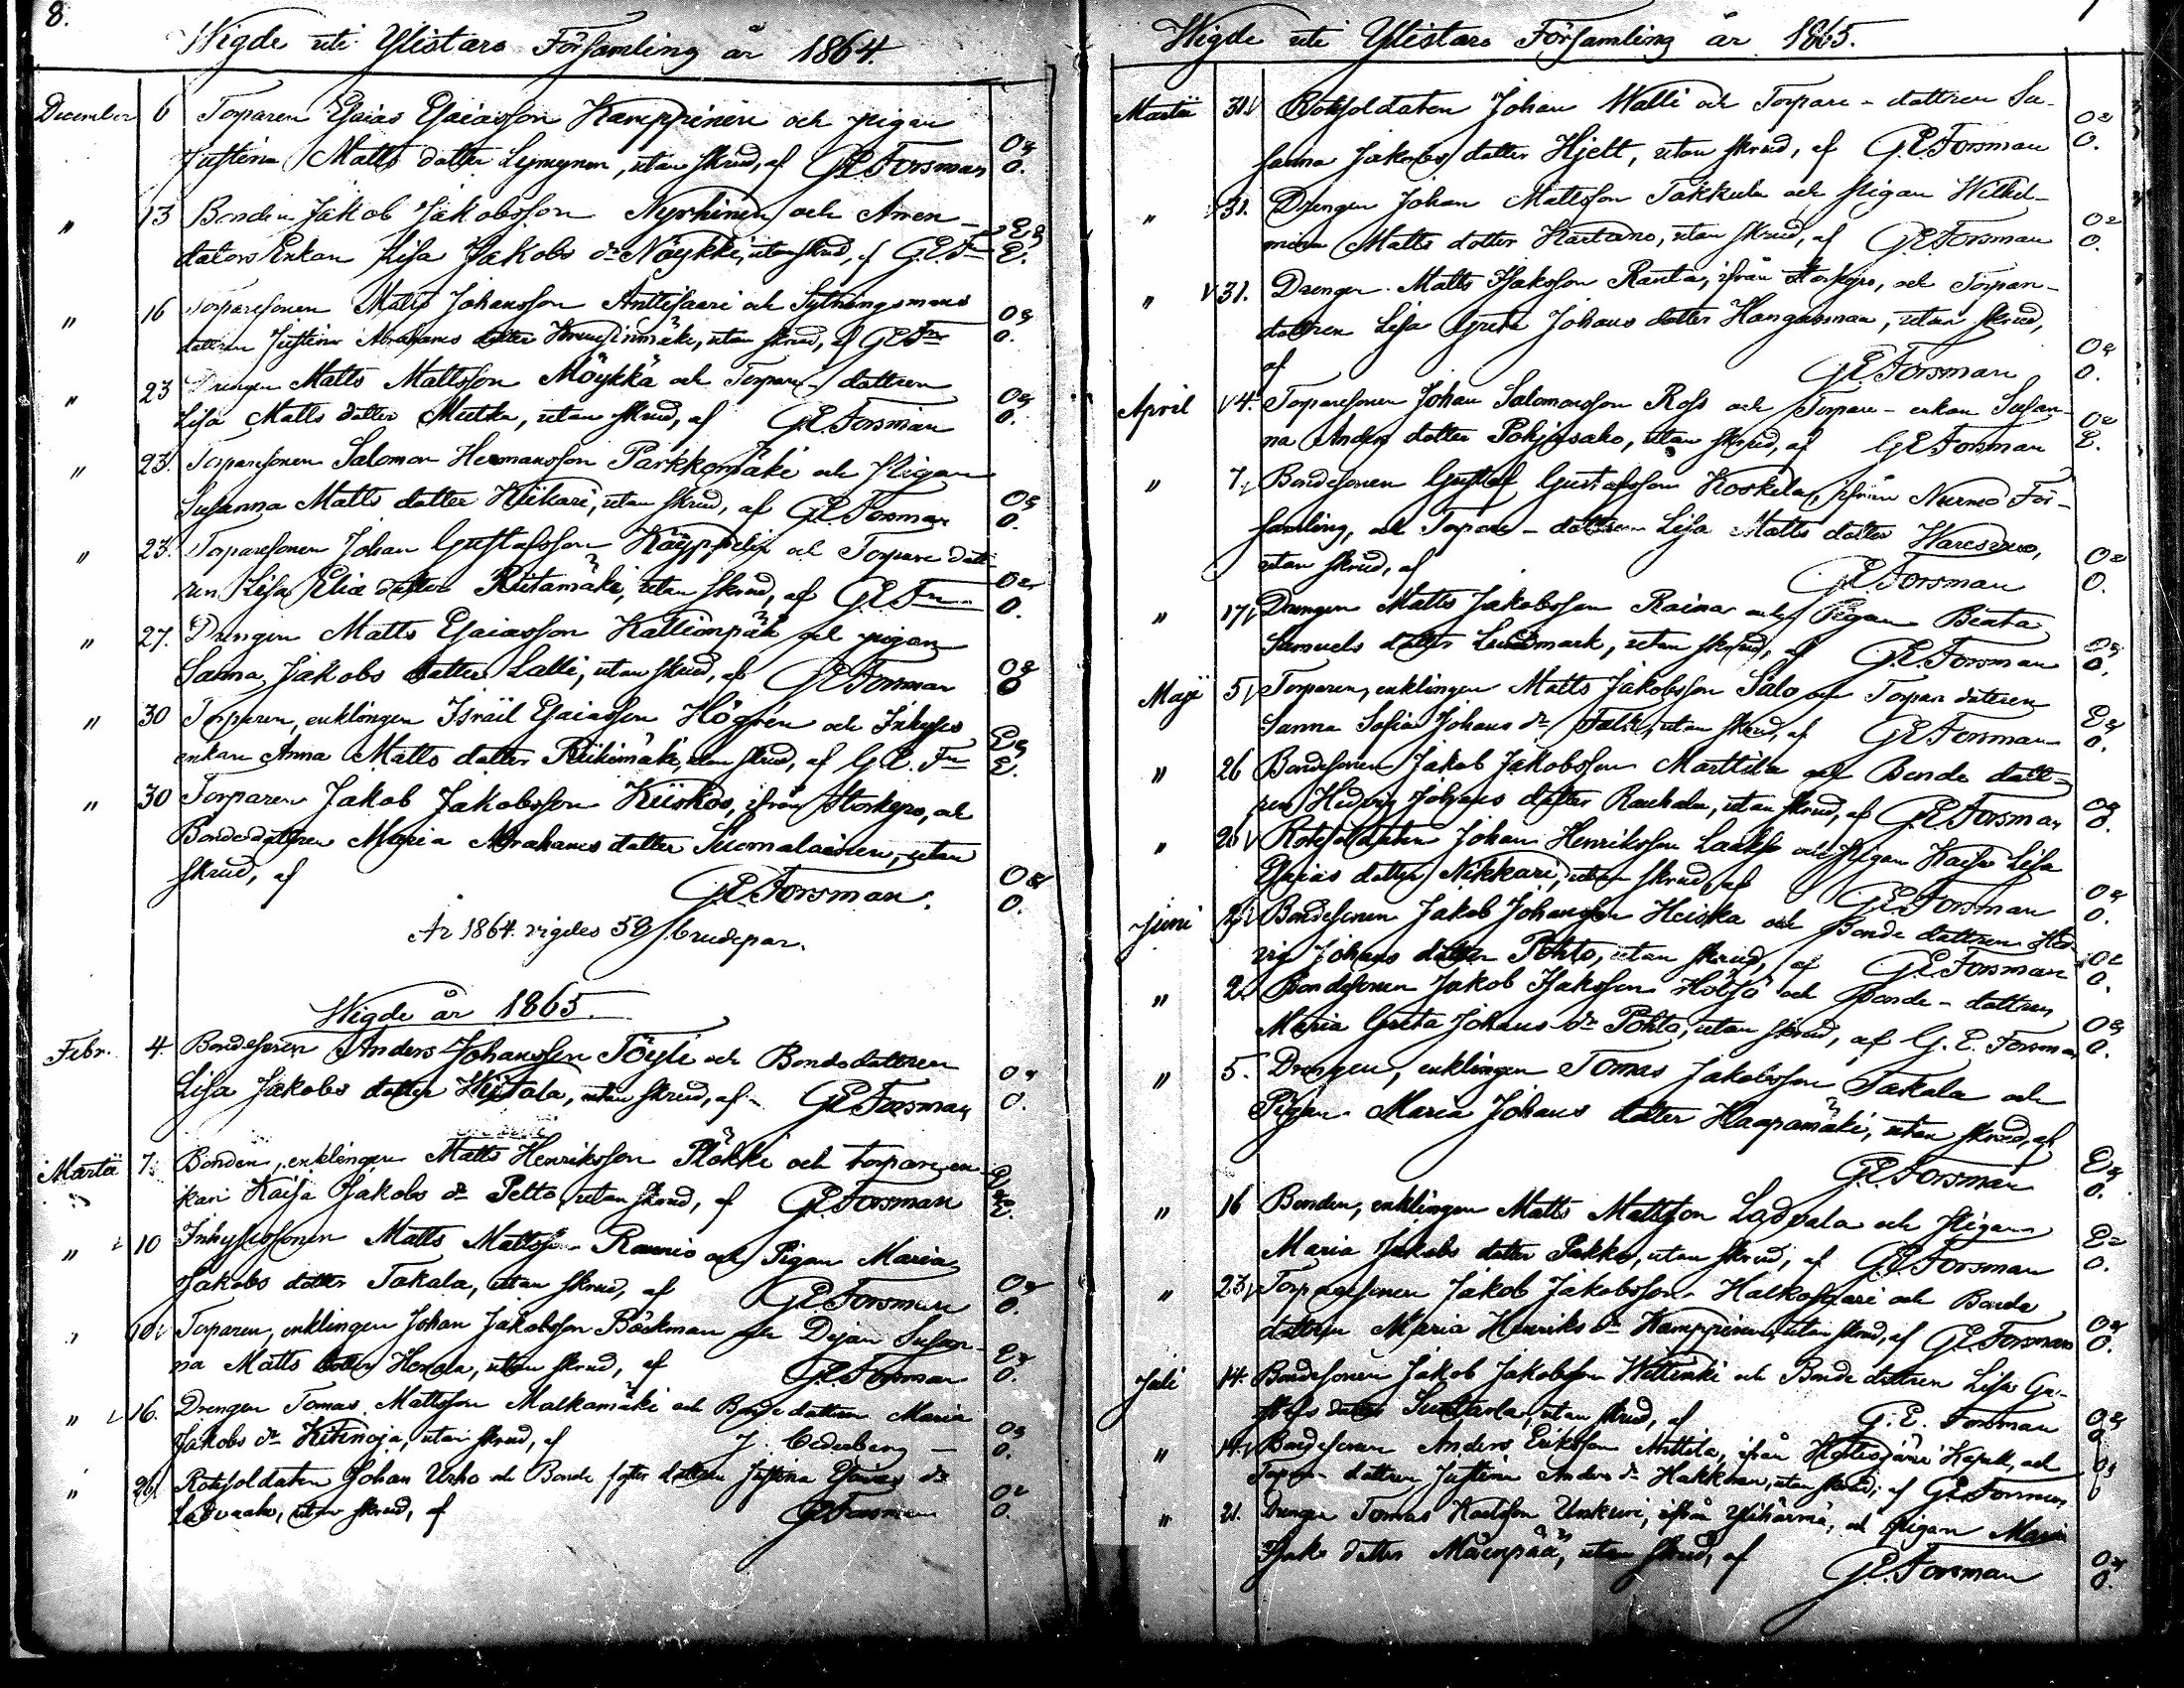 8.
Wigde uti Ylistaro Församling år 1864.
December 6 Torparen Esaias Esaiasson Kamppinen och pigan
Justina Matts dotter Lymynen, utan skrud, af G.E. Forsman O & O.
" 13 Bonden Jakob Jakobsson Nyrhinen och Aren-
dators Enkan Lisa Jakobs dr Näykki, utan skrud, af G.E. Fn E & E.
" 16 Torparesonen Matts Johansson Anttisaari och Sytningsmans
dottren Justina Abrahams dotter utan skrud, af G.E. Fn O & O.
" 23 Drengen Matts Mattsson Möykkä och Torpare-dottren
Lisa Matts dotter Mutka, utan skrud, af G.E. Forsman O & O.
" 23. Torparesonen Salomon Hermansson Parkkomäki och Pigan
Susanna Matts dotter Kiikari, utan skrud, af G.E. Forsman O & O.
" 23. Torparesonen Johan Gustafsson och Torpare dott-
ren Lisa Eliæ dotter Riitamäki, utan skrud, af G.E. Fn O & O.
" 27. Drengen Matts Esaiasson Kallionpää och pigan
Sanna Jakobs dotter Lalli, utan skrud, af G.E. Forsman O & O
" 30 Torparen, enklingen Isräil Esaiasson Högren och Inhyses
enkan Anna Matts dotter Riihimäki, utan skrud, af G.E. Fn E & E.
" 30 Torparen Jakob Jakobsson Kiiskos, ifrån Storkyro, och
Bondedottren Maria Abrahams dotter Suomalainen, utan
skrud, af G.E. Forsman. O & O.
År 1864 vigdes 59 brudepar.
Wigde år 1865.
Febr. 4. Bondesonen Anders Johansson Töyli och Bondedottren
Lisa Jakobs dotter utan skrud, af G.E. Forsman O & O.
Martii 7. Bonden, enklingen Matts Henriksson Plökki och torpare en-
kan Kaisa Jakobs dr Petto, utan skrud, af G.E. Forsman E & E.
" 10 Inhysessonen Matts Mattsson Raunio och Pigan Maria
Jakobs dotter Takala, utan skrud, af G.E. Forsman O & O.
" 10 Torparen, enklingen Johan Jakobsson Böckman och Dejan Susan-
na Matts dotter utan skrud, af G.E. Forsman E & O.
" 16. Drengen Tomas Mattsson Malkamäki och Bonde dottren Maria
Jakobs dr Kitinoja, utan skrud, af J. Cederberg O & O.
" 26 Rotesoldaten Johan Urho och Bonde foster dottren Justina Esaias dr
utan skrud, af G.E. Forsman O & O.
Wigde uti Ylistaro Församling år 1865.
Martii 31. Rotesoldaten Johan Walli och Torpare-dottren Su-
sanna Jakobs dotter Hjelt, utan skrud, af G.E. Forsman O & O.
" 31. Drengen Johan Mattsson Takkula och Pigan Wilhel-
mina Matts dotter Kartano, utan skrud, af G.E. Forsman O & O.
" 31. Drengen Matts Isaksson Ranta, ifrån Storkyro, och Torpare-
dottren Lisa Greta Johans dotter Hangasmaa, utan skrud,
af G.E. Forsman O & O.
April 4. Torparesonen Johan Salomonsson Ross och Torpare-enkan Susan-
na Anders dotter Pohjasaho, utan skrud, af G.E. Forsman O & E.
" 7. Bondesonen Gustaf Gustafsson Koskela, ifrån Nurmo För-
samling, och Torpare-dottren Lisa Matts dotter
utan skrud, af G.E. Forsman O & O.
" 17 Drengen Matts Jakobsson Raina och Pigan Beata
Samuels dotter Lundmark, utan skrud, af G.E. Forsman O & O.
Maji 5 Torparen, enklingen Matts Jakobsson Salo och Torpare dottren
Sanna Sofia Johans dr Falk, utan skrud, af G.E. Forsman E & O.
" 26 Bondesonen Jakob Jakobsson Marttila och Bonde dott-
ren Hedvig Johans dotter Rauhala, utan skrud, af G.E. Forsman O & O.
" 26 Rotesoldaten Johan Henriksson Laakso och Pigan Kaisa Lisa
Esaias dotter Nikkari, utan skrud, af G.E. Forsman O & O.
Juni 2 Bondesonen Jakob Johansson Heiska och Bonde dottren Hed-
vig Johans dotter Pohto, utan skrud, af G.E. Forsman O & O.
" 2. Bondesonen Jakob Isaksson och Bonde-dottren
Maria Greta Johans dr Pohto, utan skrud, af G.E. Forsman O & O.
" 5. Drengen, enklingen Tomas Jakobsson Takala och
Pigan Maria Johans dotter Haapamäki, utan skrud, af
G.E. Forsman E & O.
" 16 Bonden, enklingen Matts Mattsson Ladvala och Pigan
Maria Jakobs dotter Pakka, utan skrud, af G.E. Forsman E & O.
" 23 Torparesonen Jakob Jakobsson Halkosaari och Bonde
dottren Maria Henriks dr Kamppinen, utan skrud, af G.E. Forsman O & O.
Juli 14. Bondesonen Jakob Jakobsson Wettenki och Bonde dottren Lisa Gu-
stafs dotter utan skrud, af G.E. Forsman O & O
" 14 Bondesonen Anders Eriksson Anttila, ifrån Kapell, och
Torpare-dottren Justina Anders dr Hakkinen, utan skrud, af G.E. Forsman O & O
" 21. Drengen Tomas Unkuri, ifrån Ylihärmä, och pigan Maria
Isaks dotter Mäenpää, utan skrud, af G.E. Forsman O & O.